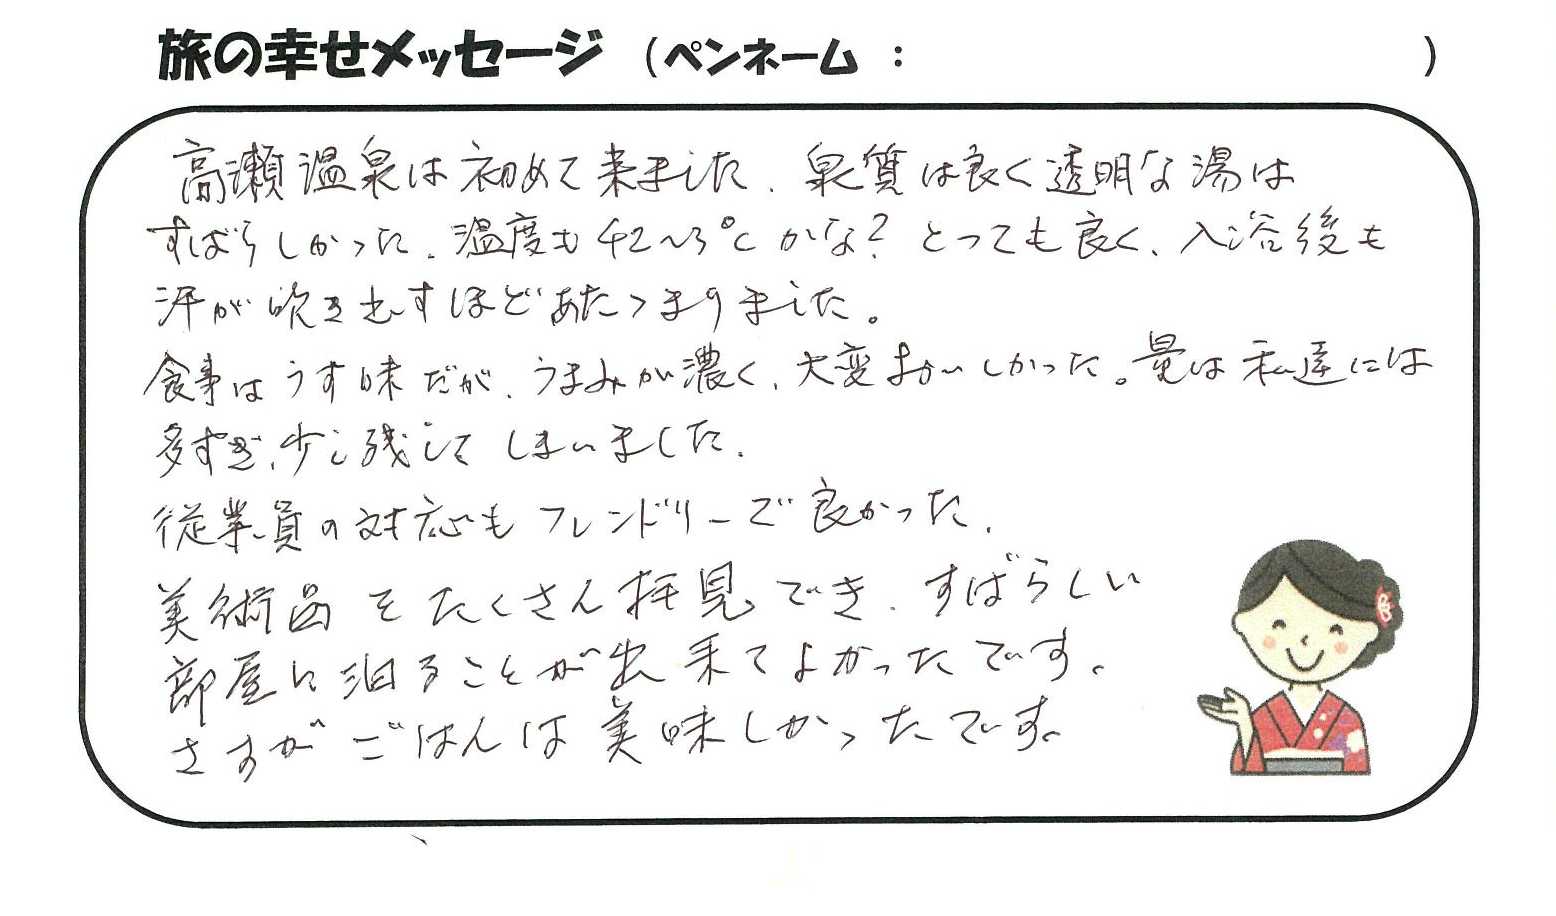 旅の幸せメッセージ (ペンネーム : )
高瀬温泉は初めて来ました、泉質は良く透明な湯は
すばらしかった、温度も42〜3℃かな?とっても良く、入浴後も
汗が吹き出すほどあたつまりました。
食事はうす味だが、うまみが濃く、大変おいしかった。量は私達には
多すぎ、少し残してしまいました、
従業員の対応もフレンドリーで良かった、
美術品をたくさん拝見でき、すばらしい
部屋に泊ることが出来てよかったです。
さすがごはんは美味しかったです。